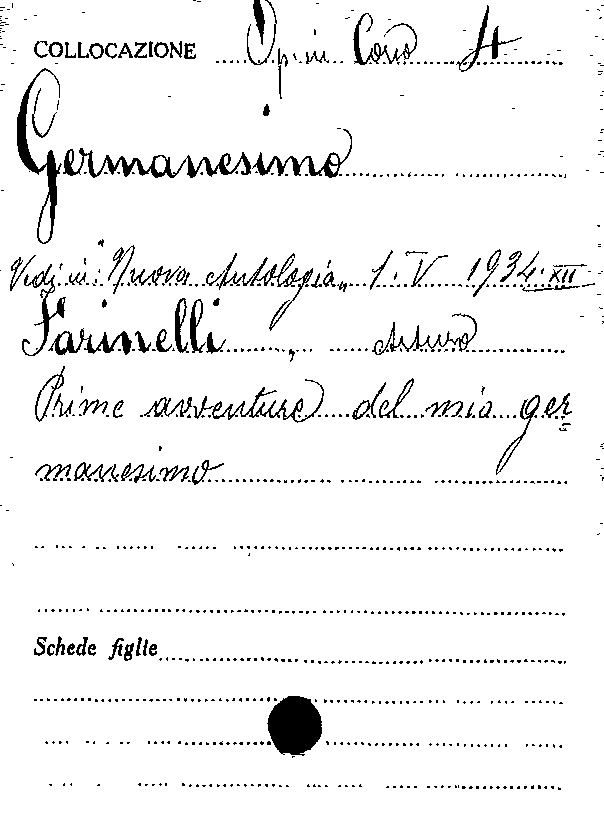 COLLOCAZIONE
Germanesimo
Vedi in "Nuova Antologia„ 1. V 1934. XII
Farinelli , Arturo
Prime avventure del mio ger
manesimo
Schede figlie